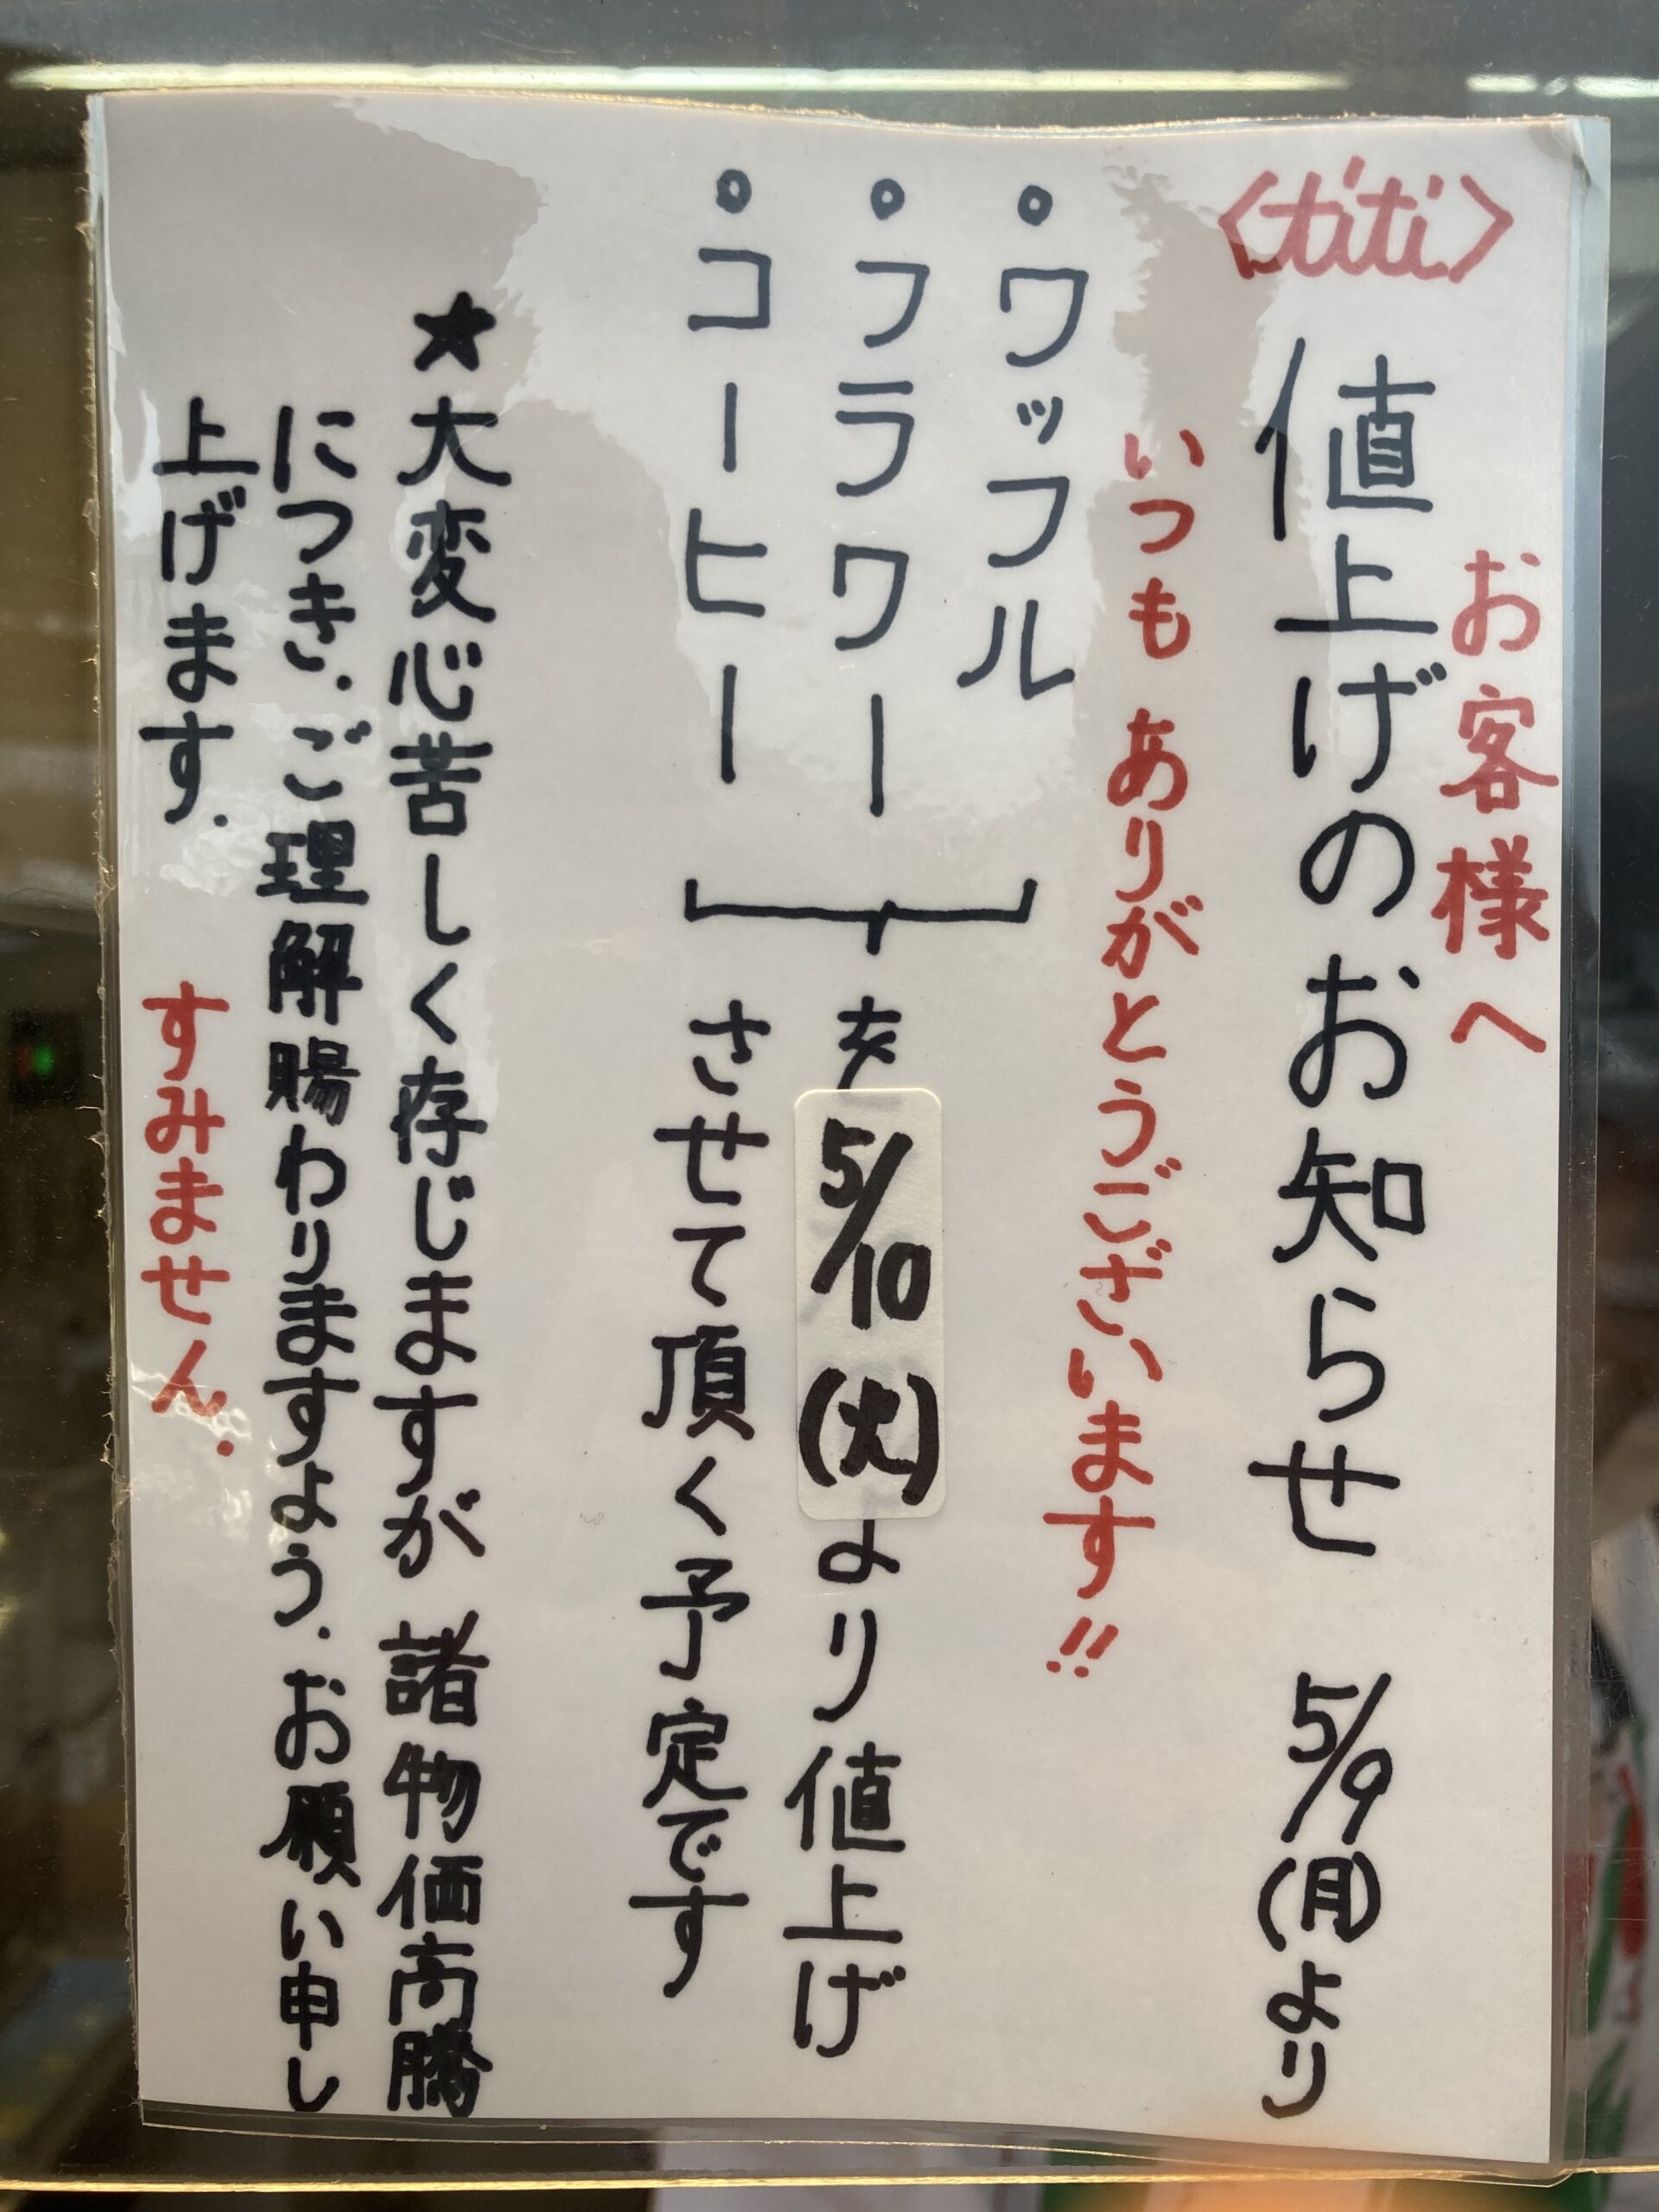 お客様へ
<titi>
値上げのお知らせ 5/9(月)より
いつもありがとうございます!!
・ワッフル
・フラワー
・コーヒー
を5/10(火)より値上げ
させて頂く予定です
★大変心苦しく存じますが 諸物価高騰
につき、ご理解賜わりますよう、お願い申し
上げます。
すみません。